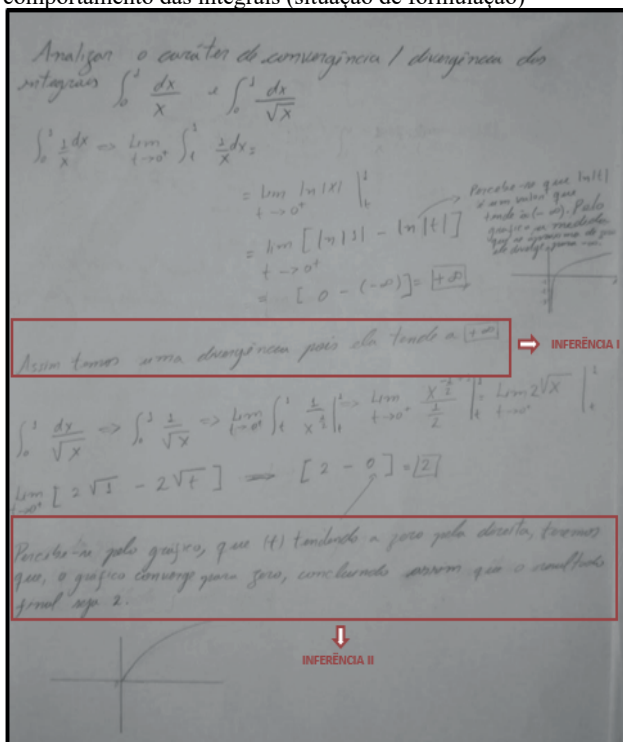 comportamento das integrais (situação de formulação)
Analizar o caráter de convergência / divergência das
integrais ∫₀¹ dx/x e ∫₀¹ dx/√x
∫₀¹ 1/x dx => Lim t→0⁺ ∫ₜ¹ 1/x dx =
= Lim t→0⁺ ln|x| |ₜ¹
= lim t→0⁺ [ln|1| - ln|t|]
Percebe-se que ln|t|
é um valor que
tende a (-∞). Pelo
gráfico a medida
que se aproxima de
= [0 - (-∞)] = +∞
Assim temos uma divergência pois ela tende a +∞
INFERÊNCIA I
∫₀¹ dx/√x => ∫₀¹ 1/√x => Lim t→0⁺ ∫ₜ¹ 1/x^½ |ₜ¹ => Lim t→0⁺ |ₜ¹ = Lim t→0⁺ 2√x |ₜ¹
Lim t→0⁺ [2√1 - 2√t] => [2 - 0] = 2
Percebe-se pelo gráfico, que (t) tendendo a zero pela direita, teremos
que, o gráfico converge para zero, concluindo assim que o resultado
final seja 2.
INFERÊNCIA II